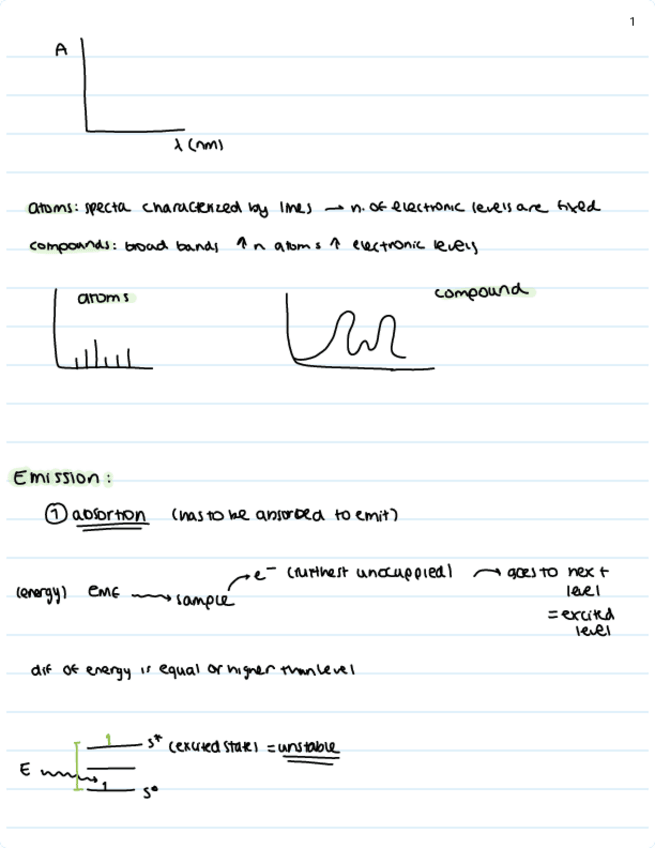 1
A
λ (nm)
atoms: specta characterized by lines → n. of electronic levels are fixed
compounds: broad bands ↑ n atoms ↑ electronic levels
atoms
compound
Emission:
① absortion (has to be absorbed to emit)
(energy) EME → sample → e⁻ (furthest unoccuppied) → goes to next
level
= excited
level
dif of energy is equal or higher than level
S* (excited state) = unstable
E
S°